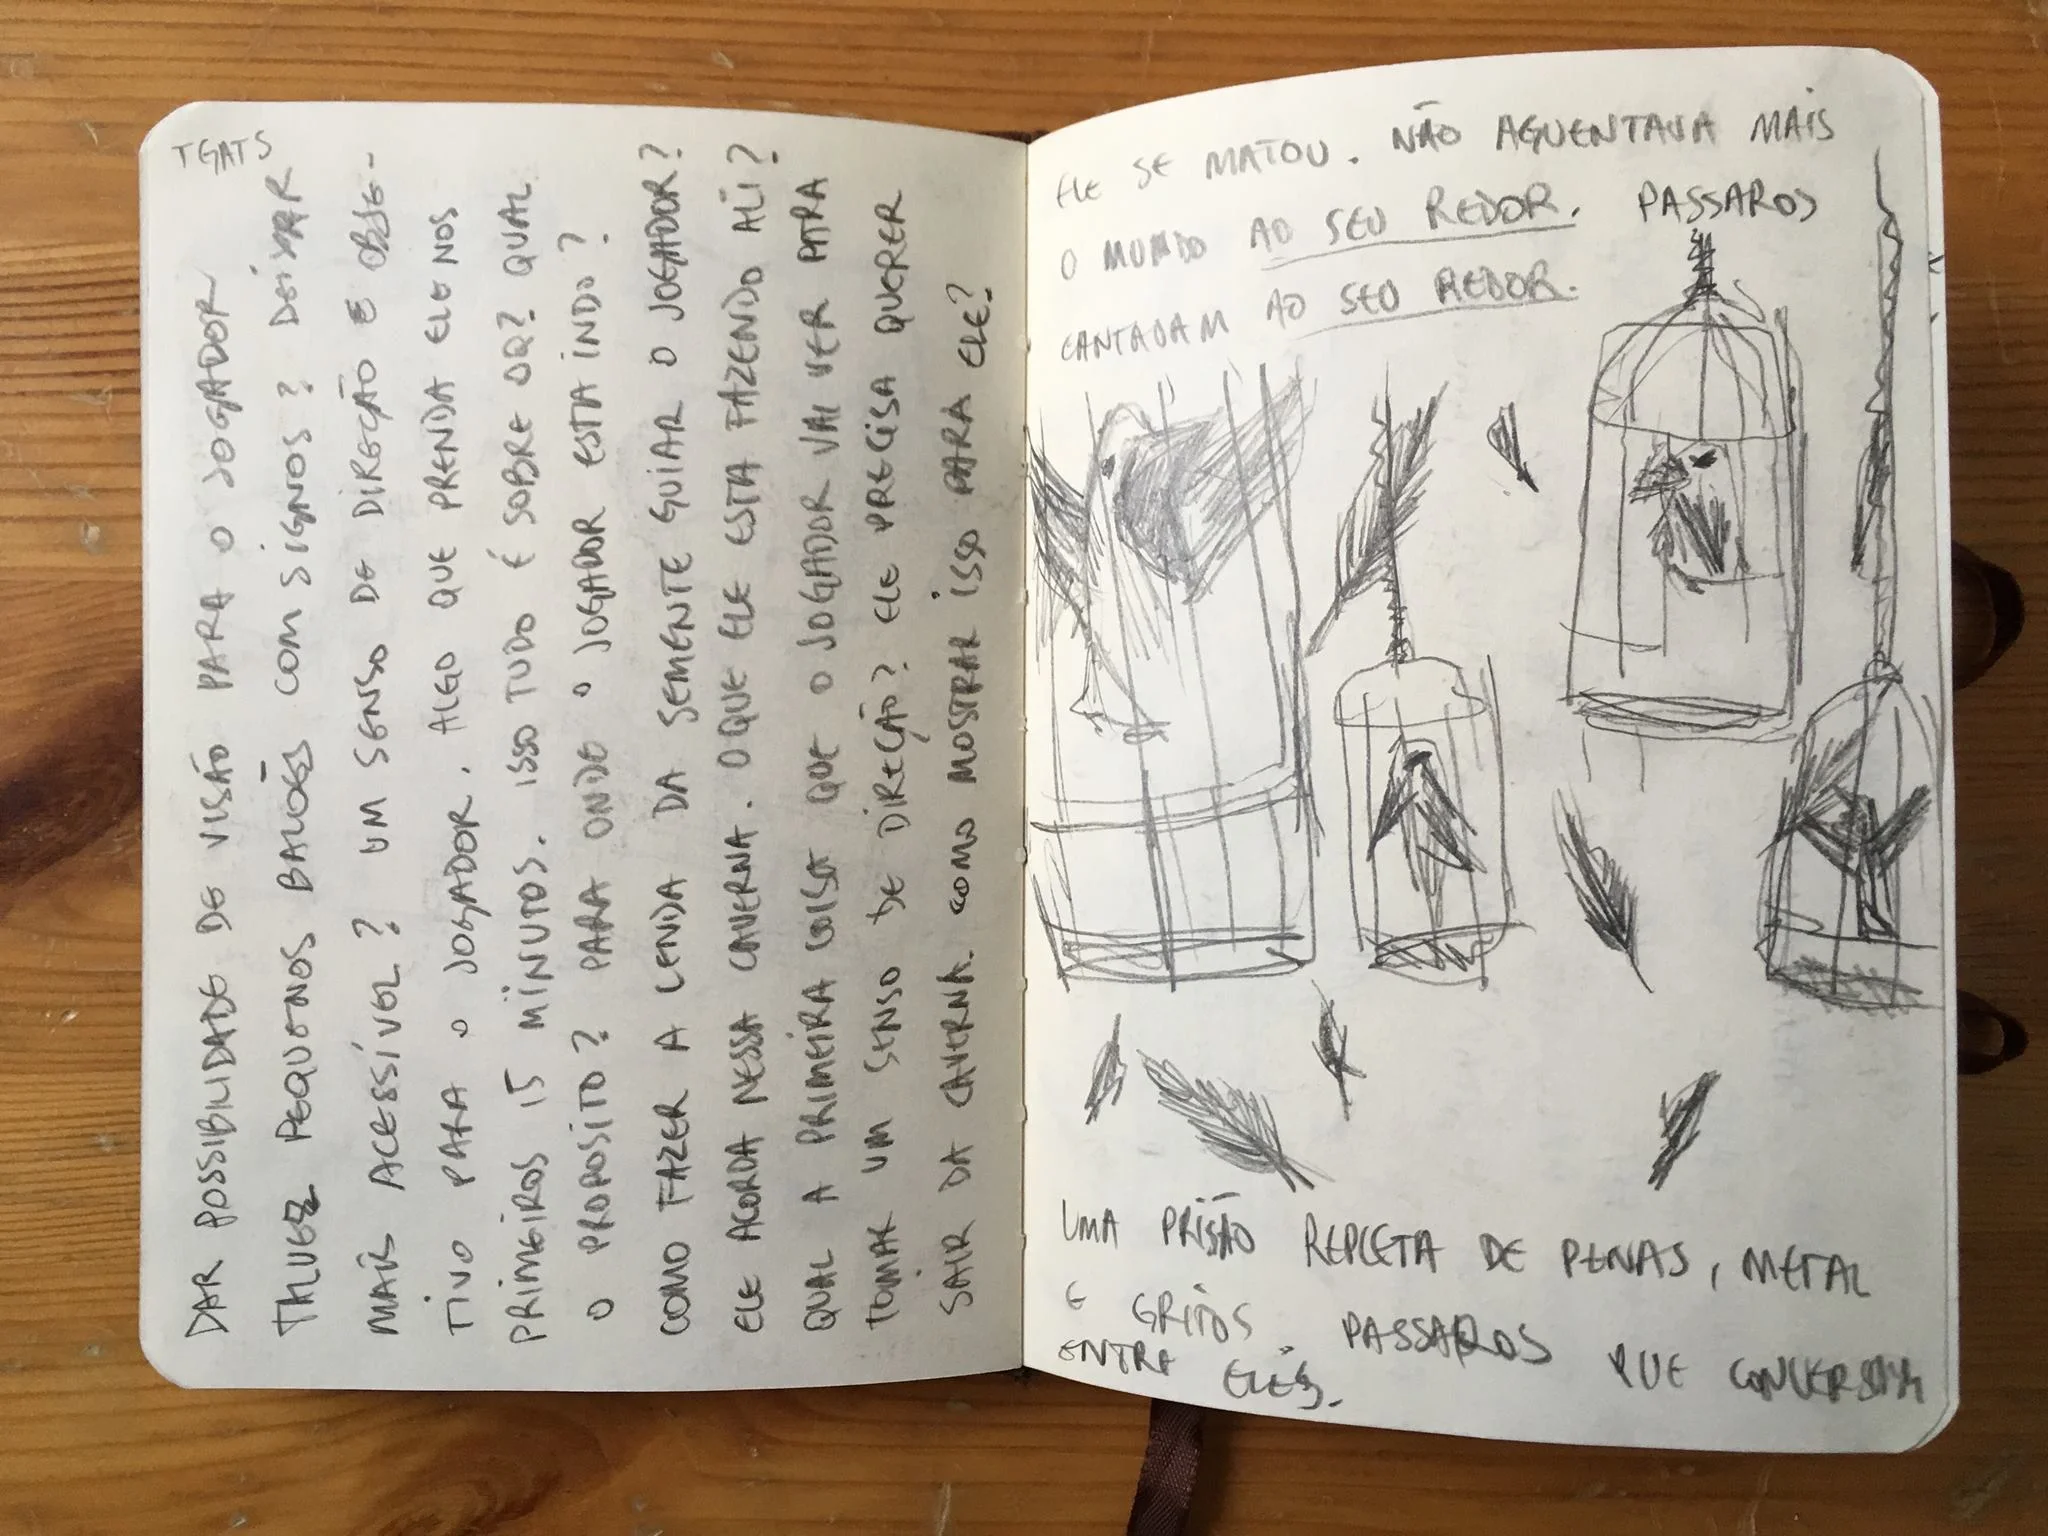 TGATS
DAR POSSIBILIDADE DE VISÃO PARA O JOGADOR
TALVEZ PEQUENOS BALÕES COM SIGNOS? DEIXAR
MAIS ACESSÍVEL? UM SENSO DE DIREÇÃO E OBJE-
TIVO PARA O JOGADOR. ALGO QUE PRENDA ELE NOS
PRIMEIROS 15 MINUTOS. ISSO TUDO É SOBRE OQ? QUAL
O PROPOSITO? PARA ONDE O JOGADOR ESTA INDO?
COMO FAZER A LENDA DA SEMENTE GUIAR O JOGADOR?
ELE ACORDA NESSA CAVERNA. OQUE ELE ESTA FAZENDO ALI?
QUAL A PRIMEIRA COISA QUE O JOGADOR VAI VER PARA
TOMAR UM SENSO DE DIREÇÃO? ELE PRECISA QUERER
SAIR DA CAVERNA. COMO MOSTRAR ISSO PARA ELE?
ELE SE MATOU. NÃO AGUENTAVA MAIS
O MUNDO AO SEU REDOR. PASSAROS
CANTAVAM AO SEU REDOR.
UMA PRISÃO REPLETA DE PENAS, METAL
E GRITOS PASSAROS QUE CONVERSAM
ENTRE ELES.